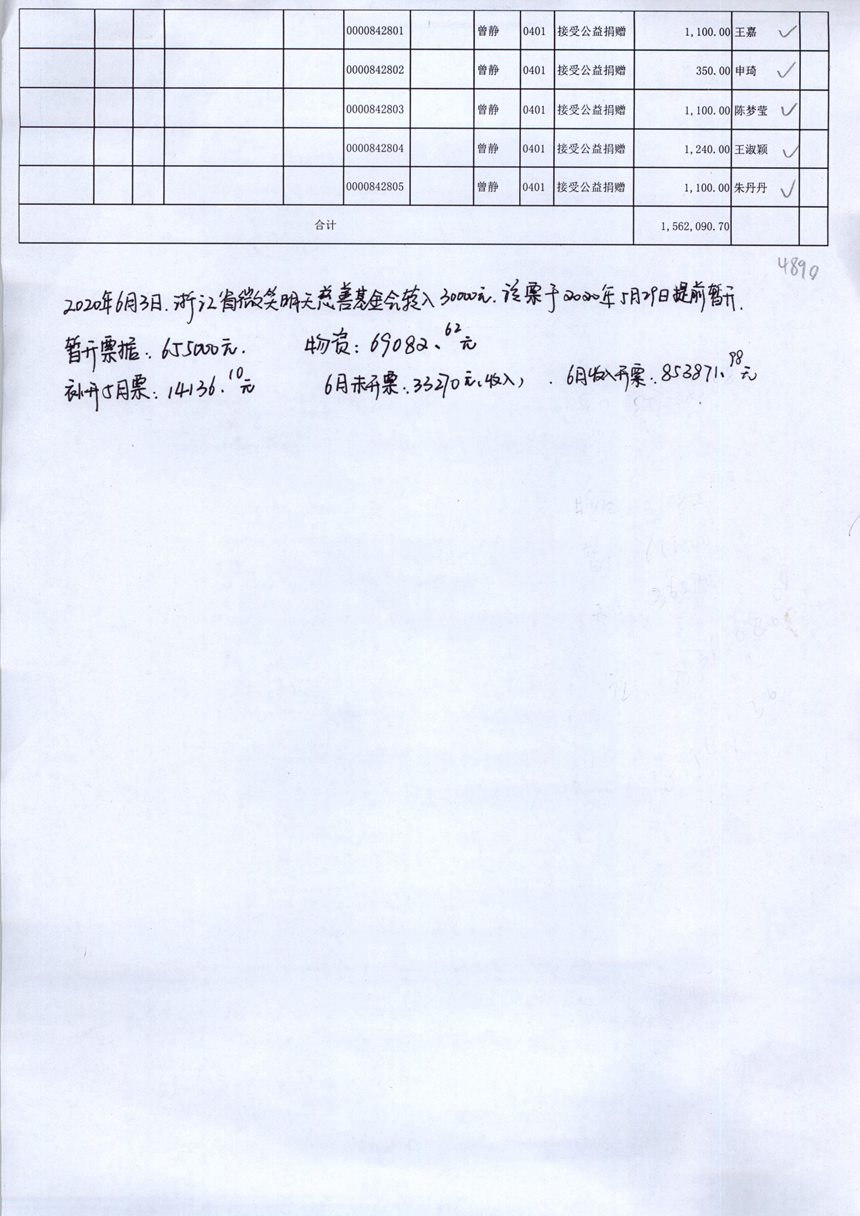 0000842801 曾静 0401 接受公益捐赠 1,100.00 王嘉
0000842802 曾静 0401 接受公益捐赠 350.00 申琦
0000842803 曾静 0401 接受公益捐赠 1,100.00 陈梦莹
0000842804 曾静 0401 接受公益捐赠 1,240.00 王淑颖
0000842805 曾静 0401 接受公益捐赠 1,100.00 朱丹丹
合计 1,562,090.70
4890
2020年6月3日.浙江省微笑明天慈善基金会转入30000元.该票于2020年5月29日提前暂开.
暂开票据:655000元. 物资:69082.62元
补开5月票:14136.10元 6月未开票:33270元(收入) 6月收入开票:853871.98元